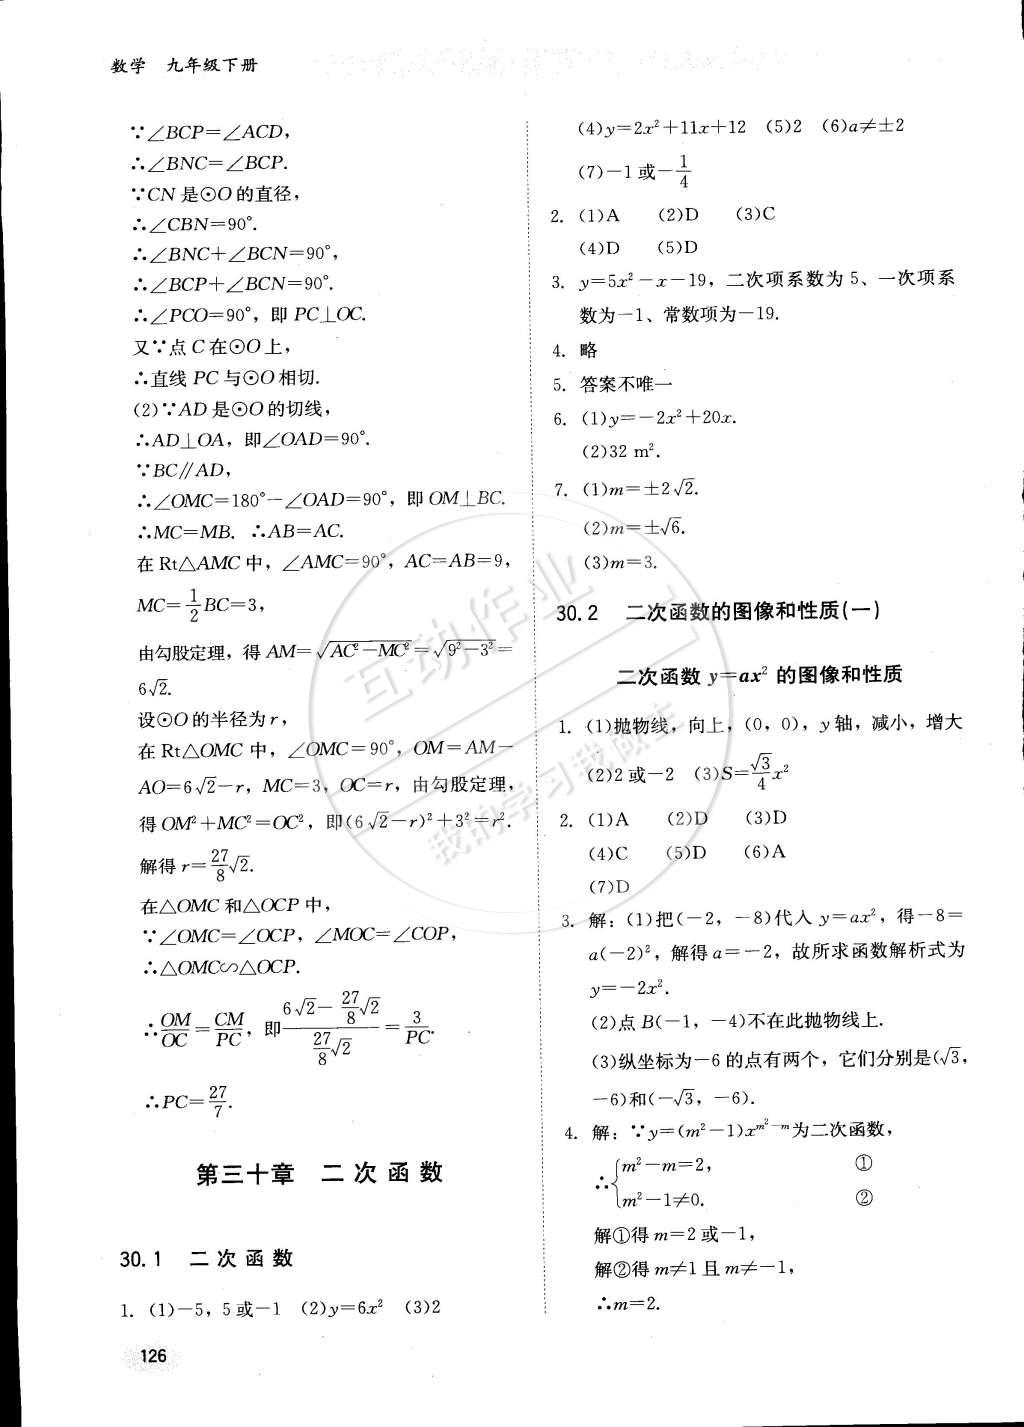 数学 九年级下册
∵∠BCP=∠ACD,
∴∠BNC=∠BCP.
∵CN是⊙O的直径,
∴∠CBN=90°.
∴∠BNC+∠BCN=90°,
∴∠BCP+∠BCN=90°.
∴∠PCO=90°, 即PC⊥OC.
又∵点C在⊙O上,
∴直线PC与⊙O相切.
(2)∵AD是⊙O的切线,
∴AD⊥OA, 即∠OAD=90°.
∵BC∥AD,
∴∠OMC=180°-∠OAD=90°, 即OM⊥BC.
∴MC=MB. ∴AB=AC.
在Rt△AMC中, ∠AMC=90°, AC=AB=9,
MC=1/2BC=3,
由勾股定理, 得AM=√(AC²-MC²)=√(9²-3²)=
6√2.
设⊙O的半径为r,
在Rt△OMC中, ∠OMC=90°, OM=AM-
AO=6√2-r, MC=3, OC=r, 由勾股定理,
得OM²+MC²=OC², 即(6√2-r)²+3²=r².
解得r=27/8√2.
在△OMC和△OCP中,
∵∠OMC=∠OCP, ∠MOC=∠COP,
∴△OMC∽△OCP.
∴OM/OC=CM/PC, 即(6√2-27/8√2)/(27/8√2)=3/PC.
∴PC=27/7.
第三十章 二次函数
30.1 二次函数
1. (1)-5, 5或-1 (2)y=6x² (3)2
126
(4)y=2x²+11x+12 (5)2 (6)a≠±2
(7)-1或-1/4
2. (1)A (2)D (3)C
(4)D (5)D
3. y=5x²-x-19, 二次项系数为5、一次项系
数为-1、常数项为-19.
4. 略
5. 答案不唯一
6. (1)y=-2x²+20x.
(2)32 m².
7. (1)m=±2√2.
(2)m=±√6.
(3)m=3.
30.2 二次函数的图像和性质(一)
二次函数y=ax²的图像和性质
1. (1)抛物线, 向上, (0, 0), y轴, 减小, 增大
(2)2或-2 (3)S=√3/4x²
2. (1)A (2)D (3)D
(4)C (5)D (6)A
(7)D
3. 解: (1)把(-2, -8)代入y=ax², 得-8=
a(-2)², 解得a=-2, 故所求函数解析式为
y=-2x².
(2)点B(-1, -4)不在此抛物线上.
(3)纵坐标为-6的点有两个, 它们分别是(√3,
-6)和(-√3, -6).
4. 解: ∵y=(m²-1)x^(m²-m)为二次函数,
∴{m²-m=2, ①
m²-1≠0. ②
解①得m=2或-1,
解②得m≠1且m≠-1,
∴m=2.
互动作业
我的学习我做主